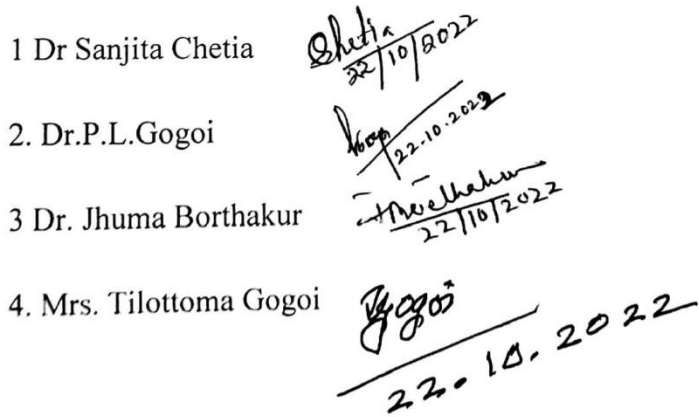 1 Dr Sanjita Chetia Chetia
22/10/2022
2. Dr.P.L.Gogoi
22.10.2022
3 Dr. Jhuma Borthakur
22/10/2022
4. Mrs. Tilottoma Gogoi Gogoi
22.10.2022